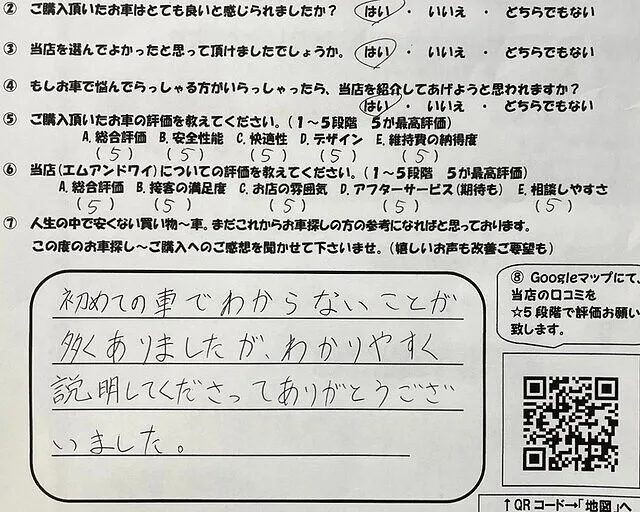 ② ご購入頂いたお車はとても良いと感じられましたか? はい ・ いいえ ・ どちらでもない
③ 当店を選んでよかったと思って頂けましたでしょうか。 はい ・ いいえ ・ どちらでもない
④ もしお車で悩んでらっしゃる方がいらっしゃったら、当店を紹介してあげようと思われますか?
はい ・ いいえ ・ どちらでもない
⑤ ご購入頂いたお車の評価を教えてください。(1～5段階 5が最高評価)
A.総合評価 B.安全性能 C.快適性 D.デザイン E.維持費の納得度
(5) (5) (5) (5) (5)
⑥ 当店(エムアンドワイ)についての評価を教えてください。(1～5段階 5が最高評価)
A.総合評価 B.接客の満足度 C.お店の雰囲気 D.アフターサービス(期待も) E.相談しやすさ
(5) (5) (5) (5) (5)
⑦ 人生の中で安くない買い物～車。まだこれからお車探しの方の参考になればと思っております。
この度のお車探し～ご購入へのご感想を聞かせて下さいませ。(嬉しいお声も改善ご要望も)
初めての車でわからないことが
多くありましたが、わかりやすく
説明してくださってありがとうござ
いました。
⑧ Googleマップにて、
当店の口コミを
☆5段階で評価お願い
致します。
↑QRコード→「地図」へ